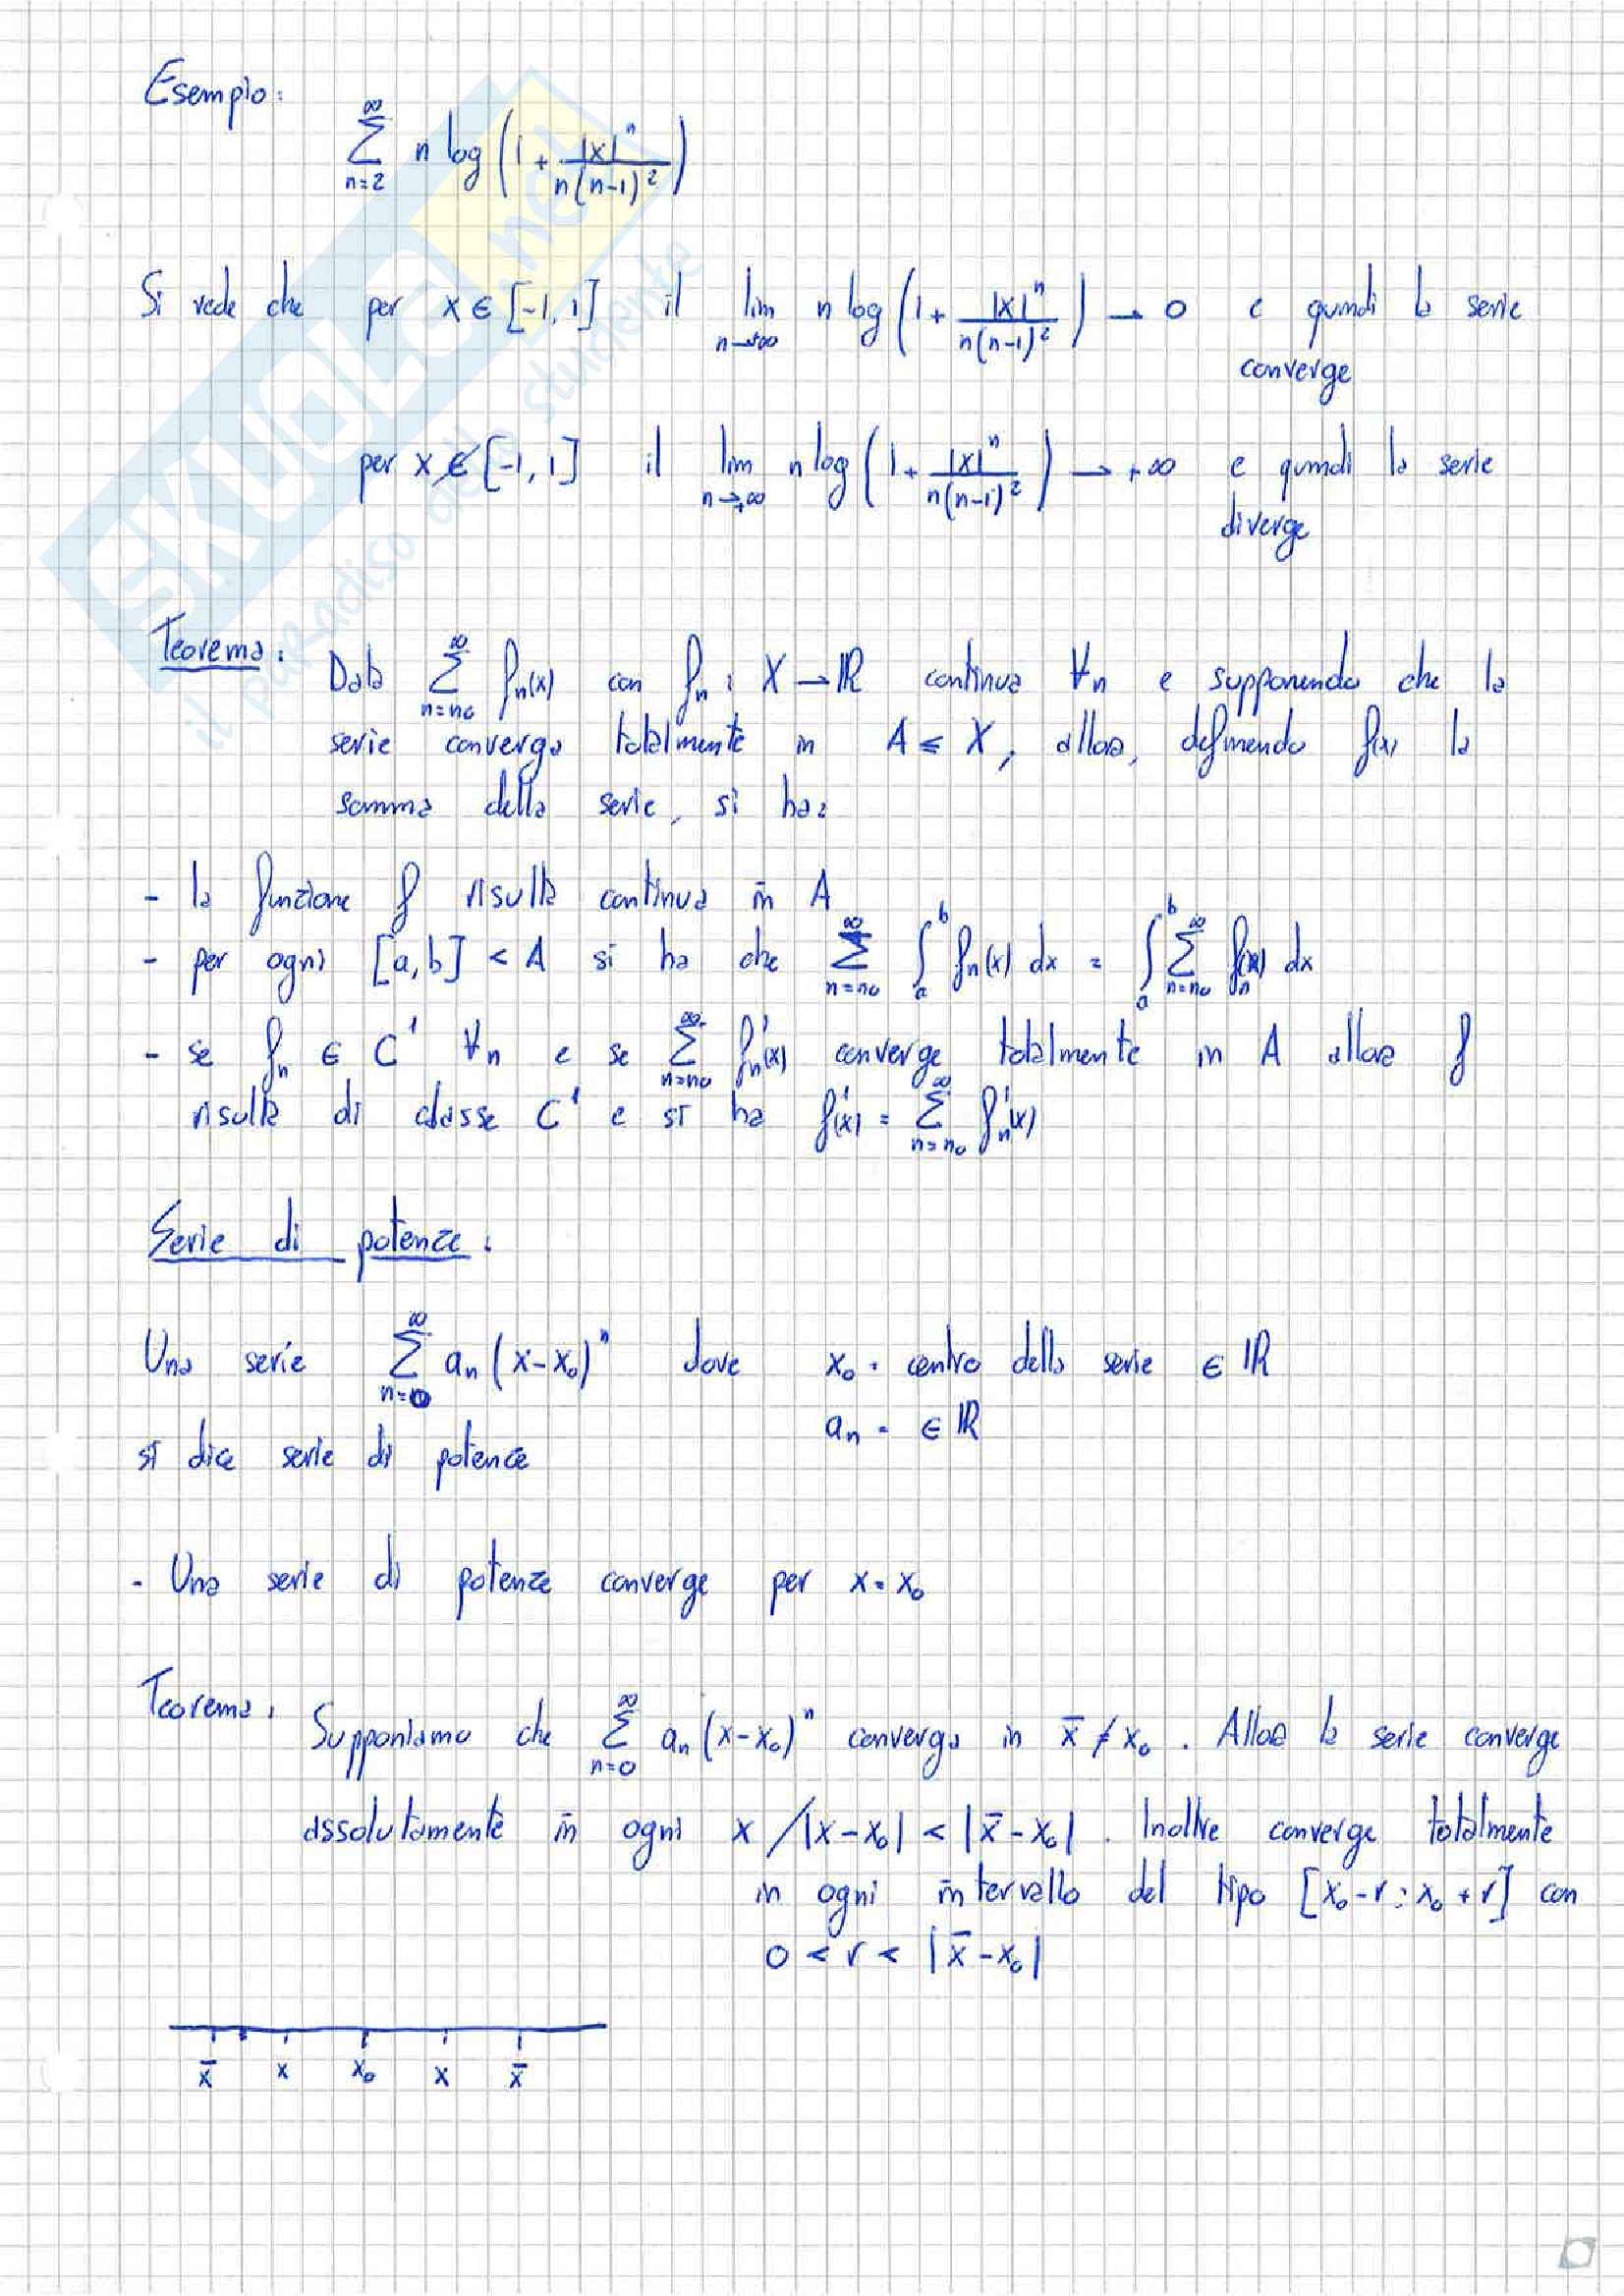 Esempio:
∑_{n=2}^{∞} n log(1 + |x|^n / n(n-1)^2)
Si vede che per x ∈ [-1,1] il lim_{n→∞} n log(1 + |x|^n / n(n-1)^2) → 0 e quindi la serie
converge
per x ∉ [-1,1] il lim_{n→∞} n log(1 + |x|^n / n(n-1)^2) → +∞ e quindi la serie
diverge
Teorema: Data ∑_{n=n0}^{∞} fn(x) con fn : X → ℝ continua ∀n e supponendo che la
serie converga totalmente in A ⊆ X, allora, definendo f(x) la
somma della serie, si ha:
- la funzione f risulta continua in A
- per ogni [a,b] < A si ha che ∑_{n=n0}^{∞} ∫_a^b fn(x) dx = ∫_a^b ∑_{n=n0}^{∞} fn(x) dx
- se fn ∈ C¹ ∀n e se ∑_{n=n0}^{∞} fn'(x) converge totalmente in A allora f
risulta di classe C¹ e si ha f'(x) = ∑_{n=n0}^{∞} fn'(x)
Serie di potenze:
Una serie ∑_{n=0}^{∞} an (x-x0)^n dove x0 = centro della serie ∈ ℝ
an = ∈ ℝ
si dice serie di potenze
- Una serie di potenze converge per x = x0
Teorema: Supponiamo che ∑_{n=0}^{∞} an (x-x0)^n converga in x̄ ≠ x0. Allora la serie converge
assolutamente in ogni x / |x-x0| < |x̄-x0|. Inoltre converge totalmente
in ogni intervallo del tipo [x0-r ; x0+r] con
0 < r < |x̄-x0|
x̄ x x0 x x̄
SKUOLA.net
il paradiso dello studente